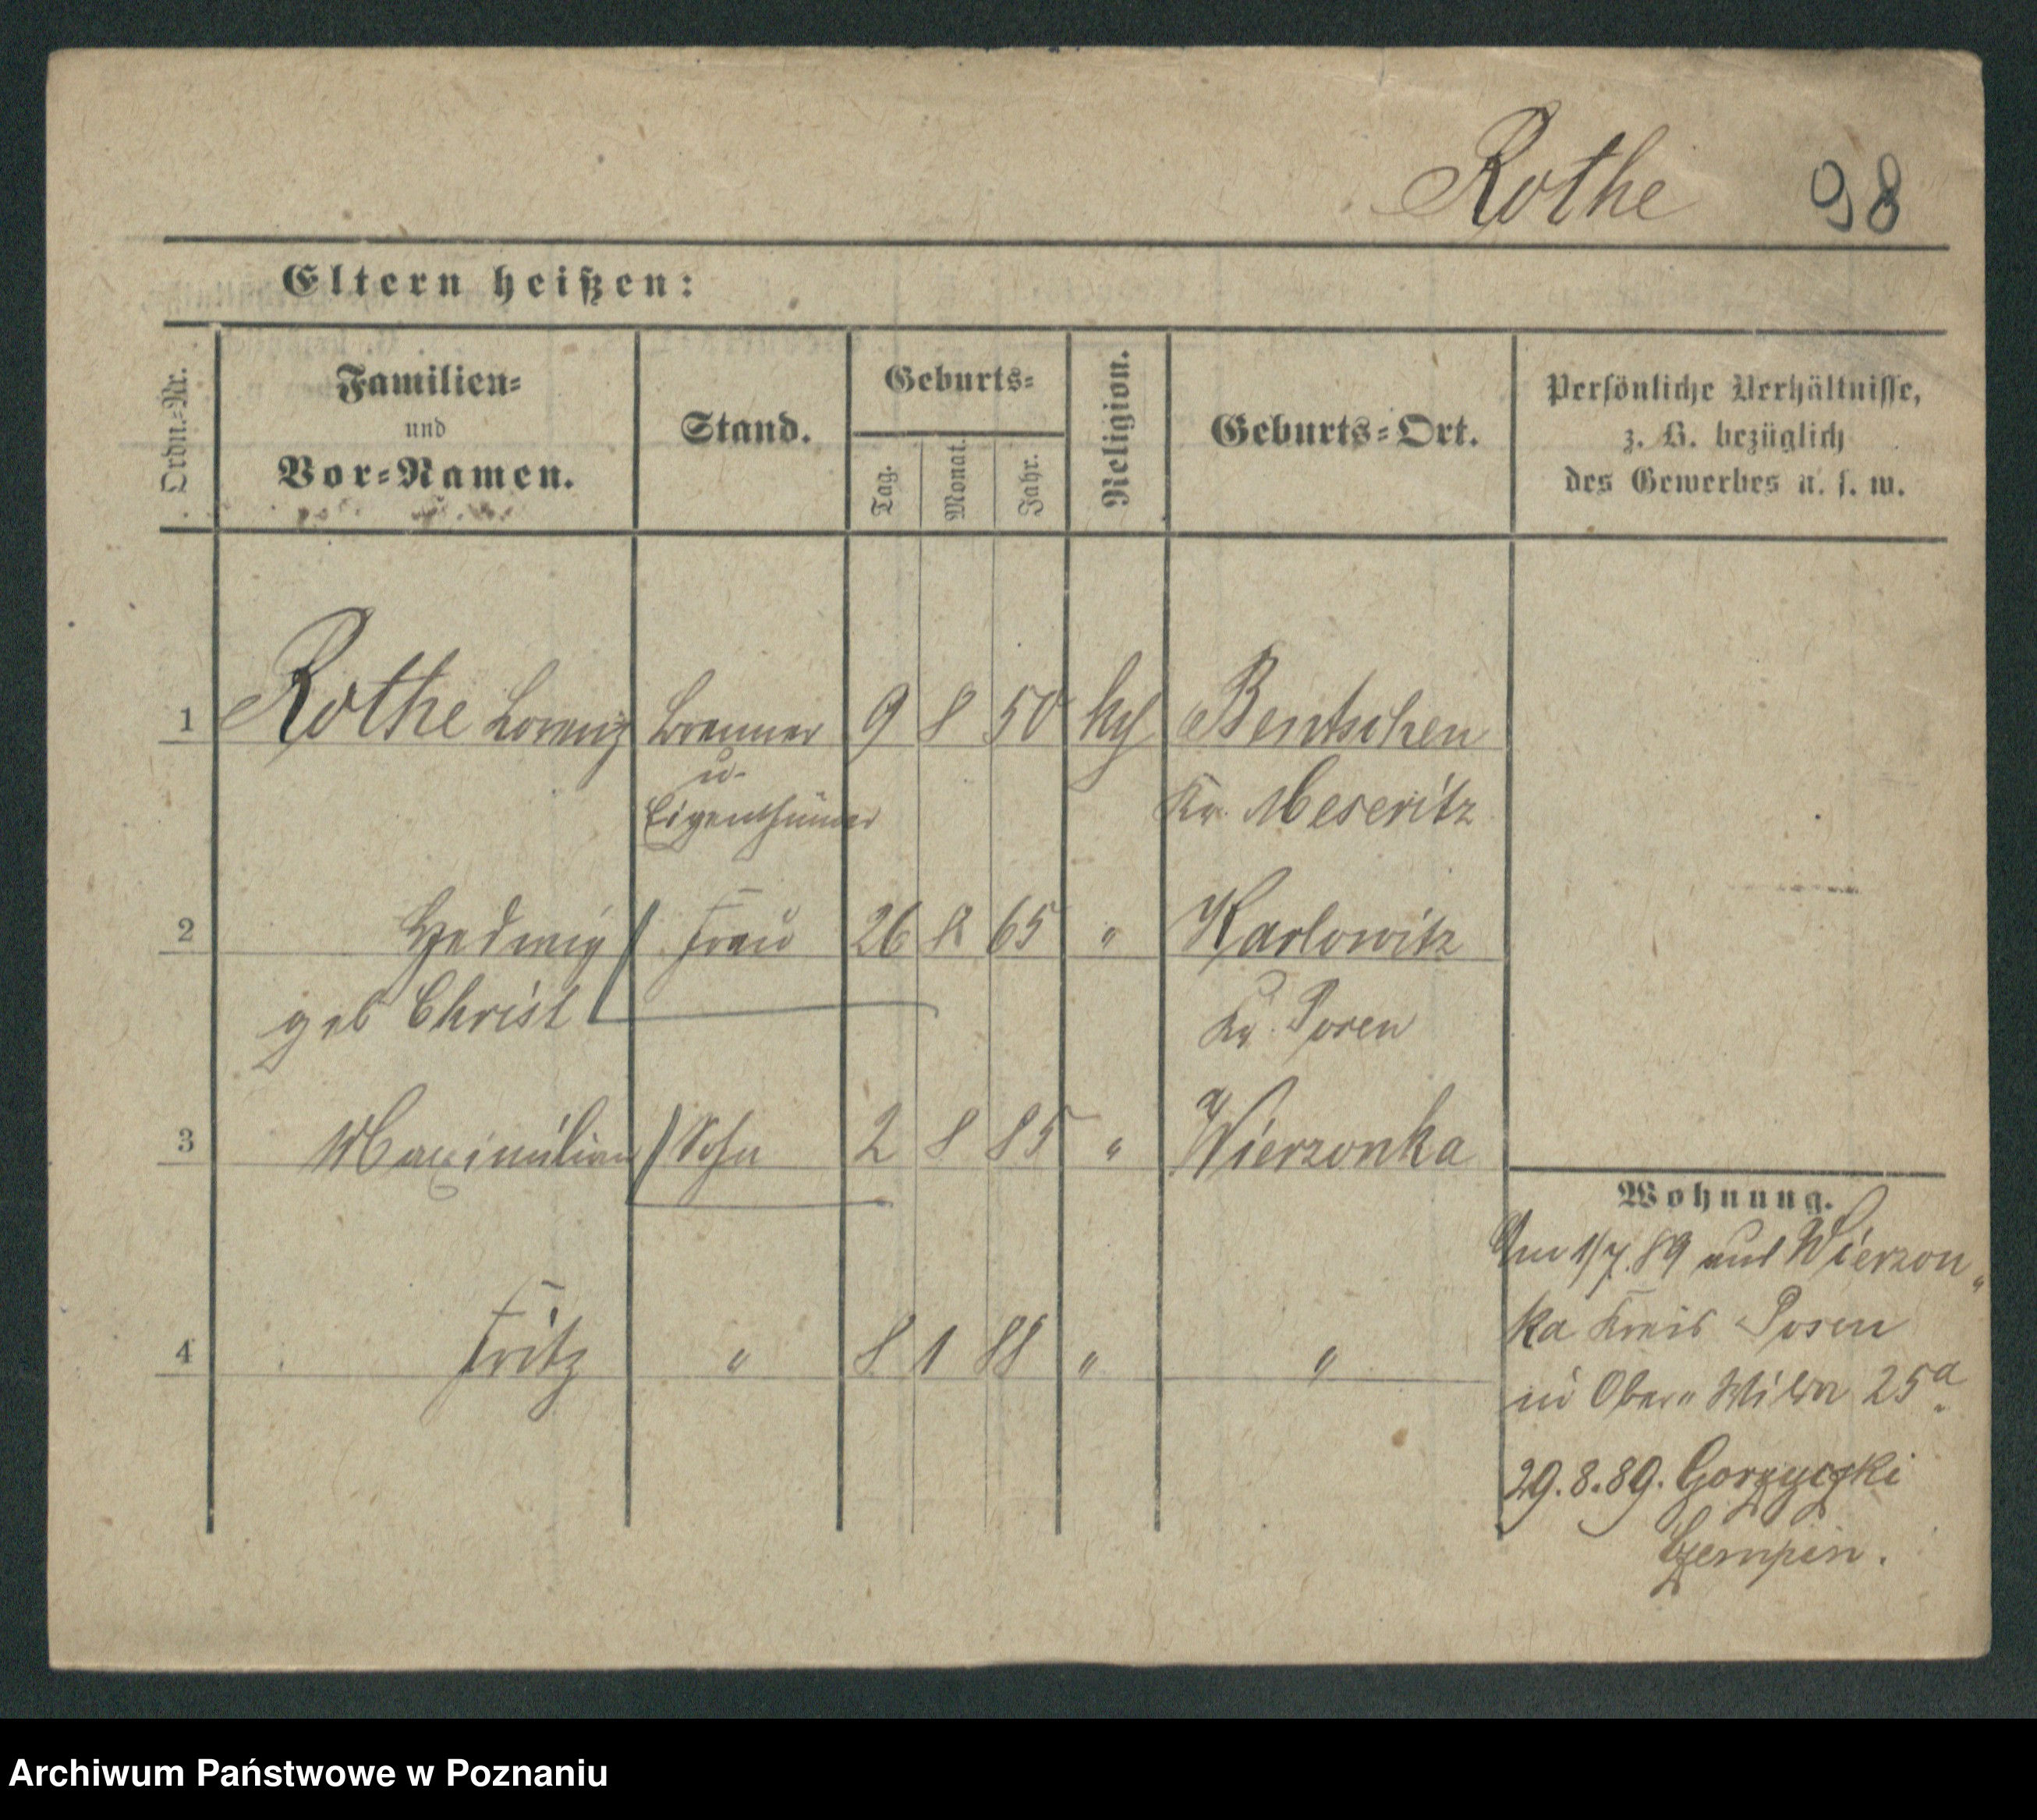 Rothe 98
Eltern heißen:
Ordn.-Nr.
Familien-
und
Vor-Namen.
Stand.
Geburts-
Tag.
Monat.
Jahr.
Religion.
Geburts-Ort.
Persönliche Verhältnisse,
z. B. bezüglich
des Gewerbes u. s. w.
1 Rothe Lorenz Brenner 9 8 50 Bentschen
u.
Eigenthümer Kr. Meseritz
2 Hedwig Frau 26 8 65 " Karlowitz
geb Christ Kr. Posen
3 Maximilian Sohn 2 8 85 " Wierzonka
Wohnung.
Am 1/7.89 aus Wierzon„
ka Kreis Posen
4 Fritz " 8 1 88 " "
in Ober" Wilda 25a
29.8.89. Gorzyczki
Czempin.
Archiwum Państwowe w Poznaniu